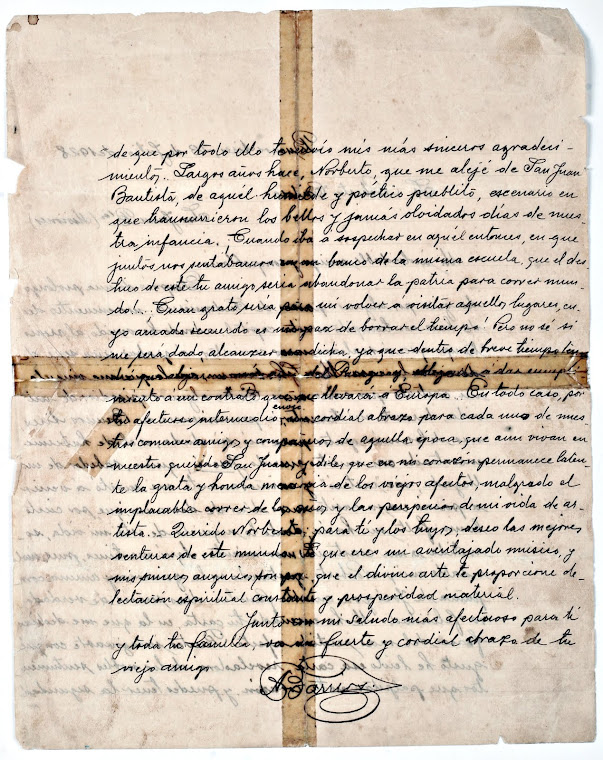 de que por todo ello te envío mis más sinceros agradeci-
mientos. Largos años hace, Norberto, que me alejé de San Juan
Bautista, de aquél humilde y poético pueblito, escenario en
que transcurrieron los bellos y jamás olvidados días de nues-
tra infancia. Cuando iba a sospechar en aquél entonces, en que
juntos nos sentábamos en un banco de la misma escuela, que el des-
tino de este tu amigo sería abandonar la patria para correr mun-
do!... Cuan grato sería para mí volver a visitar aquellos lugares, cu-
yo amado recuerdo es incapaz de borrar el tiempo! Pero no sé si
me será dado alcanzar esa dicha, ya que dentro de breve tiempo
obligado a dar cumpli-
miento a mi contrato que me llevará a Europa. En todo caso, por
tu afectuoso intermedio, envío un cordial abrazo para cada uno de nues-
tros comunes amigos y compañeros de aquella época, que aun vivan en
nuestro querido San Juan, y diles que en mi corazón permanece laten-
te la grata y honda memoria de los viejos afectos, malgrado el
implacable correr de los años, y las peripecias de mi vida de ar-
tista. Querido Norberto: para tí y los tuyos, deseo las mejores
venturas de este mundo. Sé que eres un aventajado músico, y
mis sinceros augurios son por que el divino arte te proporcione de-
lectación espiritual constante y prosperidad material.
Junto con mi saludo más afectuoso para tí
y toda tu familia, va un fuerte y cordial abrazo de tu
viejo amigo
A. Barrios.